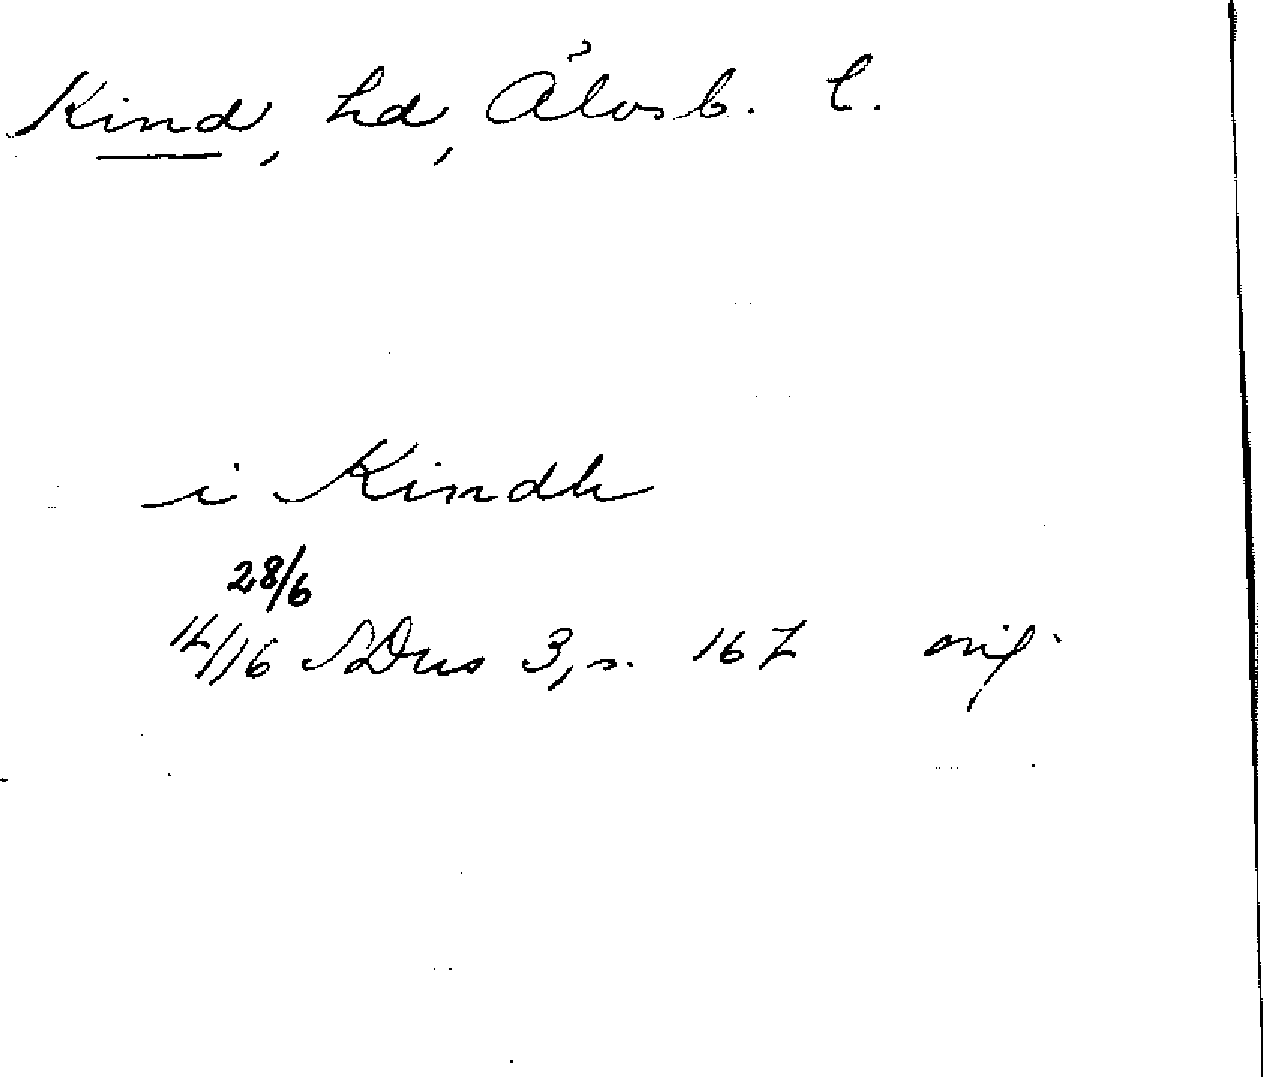 Kind, hd, Älvsb. l.
i Kindh
28/6
14/16 SDns 3, s. 167 orig.